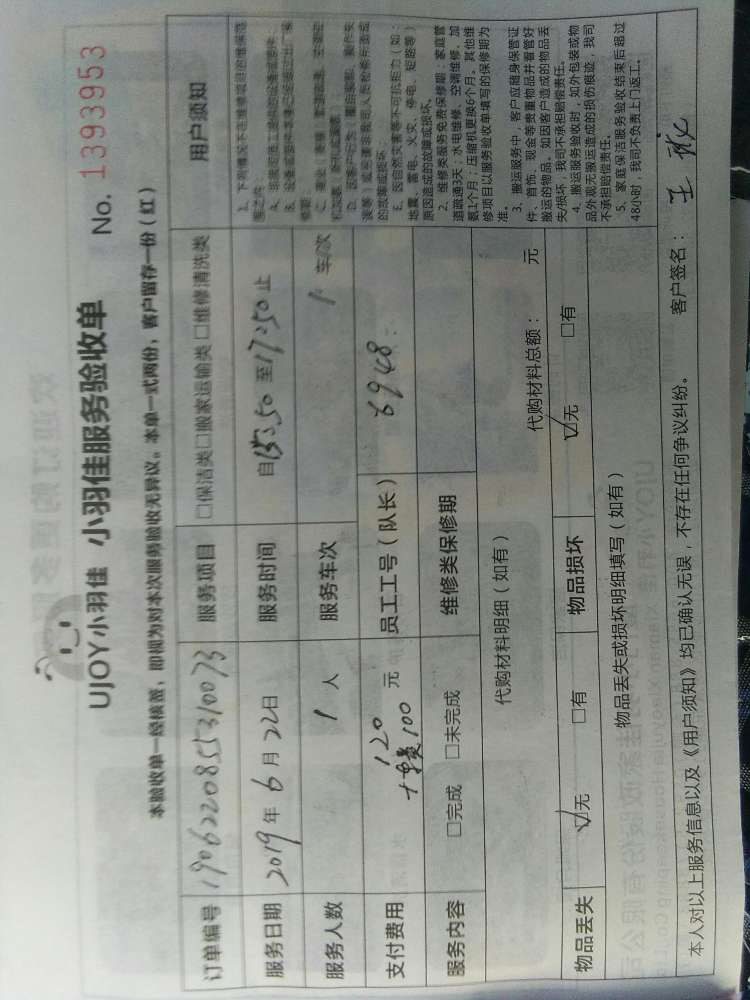 UJOY小羽佳 小羽佳服务验收单 No. 1393953
本验收单一经核签，即视为对本次服务验收无异议。本单一式两份，客户留存一份（红）
订单编号 1906220855310073 服务项目 □保洁类□搬家运输类□维修清洗类
服务日期 2019年6月22日 服务时间 自13:50至17:50止
服务人数 1人 服务车次 1车/次
支付费用 120 元 员工工号（队长） 6948
100
服务内容 □完成 □未完成 维修类保修期
代购材料明细（如有） 代购材料总额： 元
物品丢失 ☑无 □有 物品损坏 ☑无 □有
物品丢失或损坏明细填写（如有）
本人对以上服务信息以及《用户须知》均已确认无误，不存在任何争议纠纷。 客户签名：
用户须知
E、因自然灾害等不可抗拒力（如：
地震、雷电、火灾、停电、短路等）
原因造成的故障或损坏。
2、维修类服务免费保修期：家庭管
道疏通3天；水电维修、空调维修、加
氨1个月；压缩机更换6个月。其他维
修项目以服务验收单填写的保修期为
准。
3、搬运服务中，客户应随身保管证
件、首饰、现金等贵重物品并看管好
搬运的物品。如因客户造成的物品丢
失/损坏，我司不承担赔偿责任。
4、搬运服务验收时，如外包装或物
品外观无搬运造成的损伤痕迹，我司
不承担赔偿责任。
5、家庭保洁服务验收结束后超过
48小时，我司不负责上门返工。